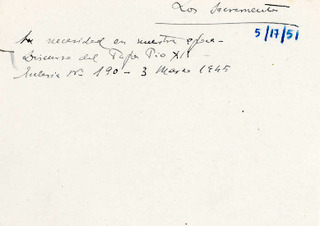 Los Sacramentos
5/17/51
su necesidad en nuestra época -
Discurso del Papa Pio XII
Ecclesia Nº 190 - 3 Marzo 1945